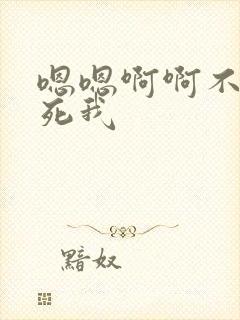 嗯嗯啊啊不
死我
黯奴